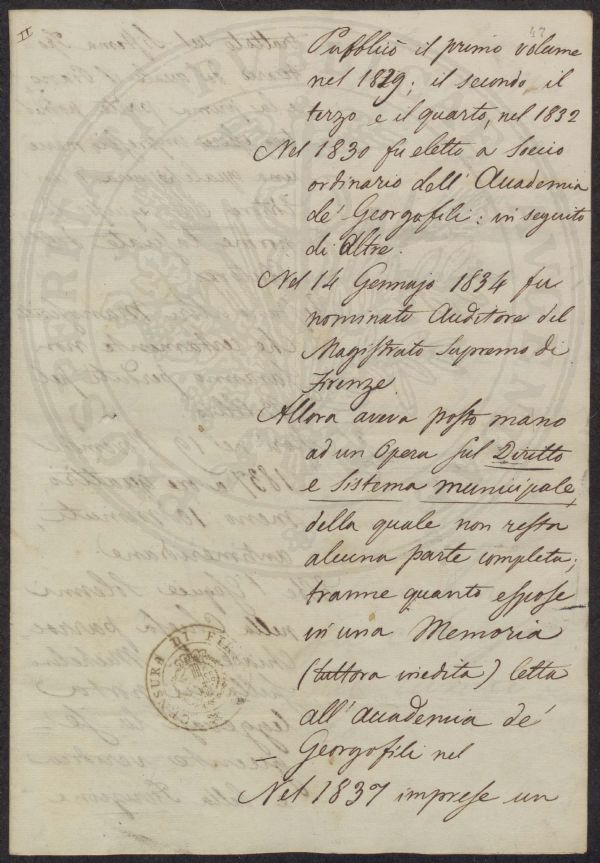 II
47
Pubblicò il primo volume
nel 1829; il secondo, il
terzo e il quarto, nel 1832
Nel 1830 fu eletto a Socio
ordinario dell' Accademia
de' Georgofili: in seguito
di Altre.
Nel 14 Gennajo 1834 fu
nominato Auditore del
Magistrato Supremo di
Firenze.
Allora aveva posto mano
ad un Opera sul Diritto
e Sistema municipale,
della quale non resta
alcuna parte completa,
tranne quanto espose
in una Memoria
(tuttora inedita) letta
all' accademia de'
Georgofili nel
Nel 1837 imprese un
CENSURA DI FIR